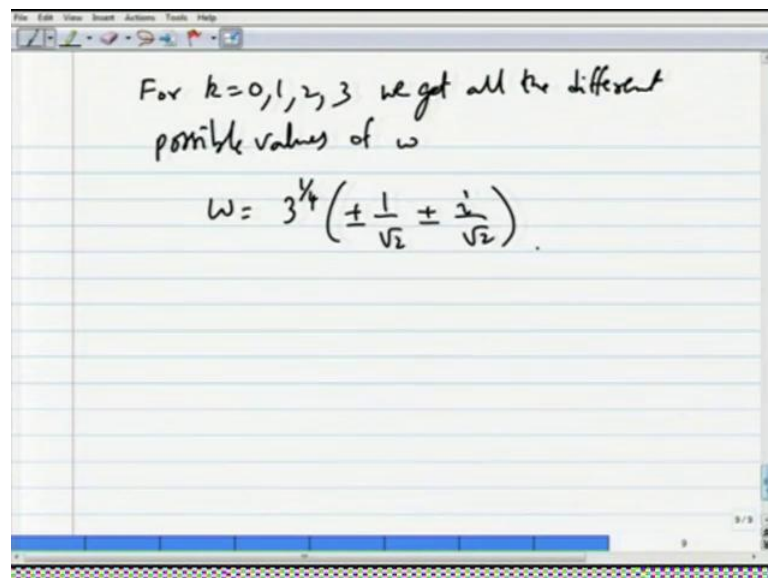 File Edit View Insert Actions Tools Help
For k=0,1,2,3 we get all the different
possible values of ω
ω = 3^{1/4} (± 1/√2 ± i/√2).
9